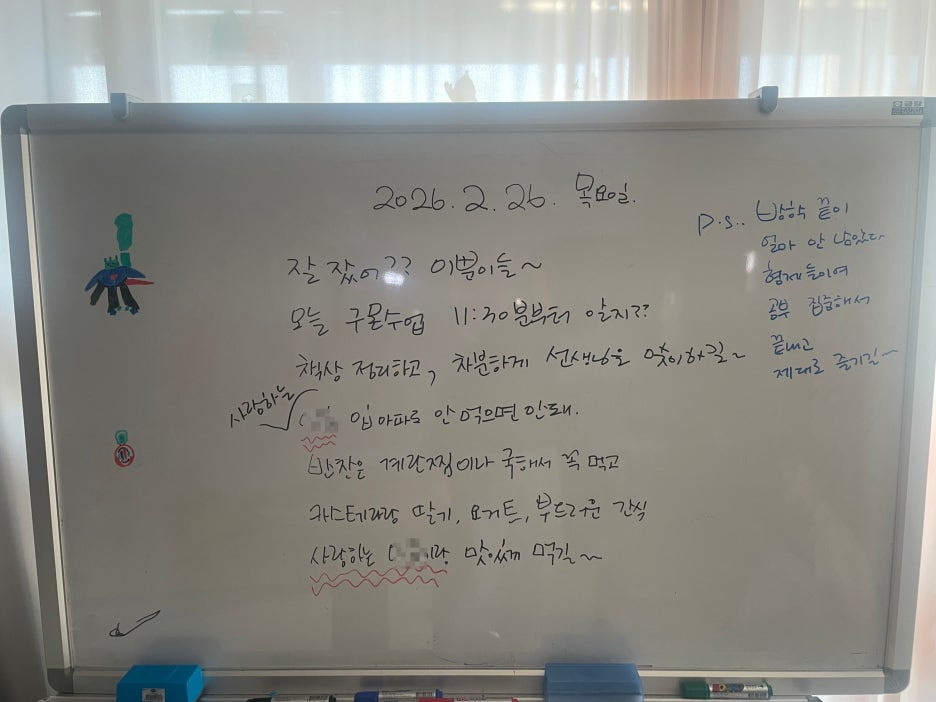 2026. 2. 26. 목요일.
잘 잤어?? 이쁜이들~
오늘 구몬수업 11:30분부터 알지??
책상 정리하고, 차분하게 선생님을 맞이하길~
사랑하는
입 아파도 안 먹으면 안돼.
반찬은 계란찜이나 국해서 꼭 먹고
카스테라랑 딸기, 요거트, 부드러운 간식
사랑하는 이랑 맛있게 먹길~
P.S.. 방학 끝이
얼마 안 남았다
형제들이여
공부 집중해서
끝내고
제대로 즐기길~